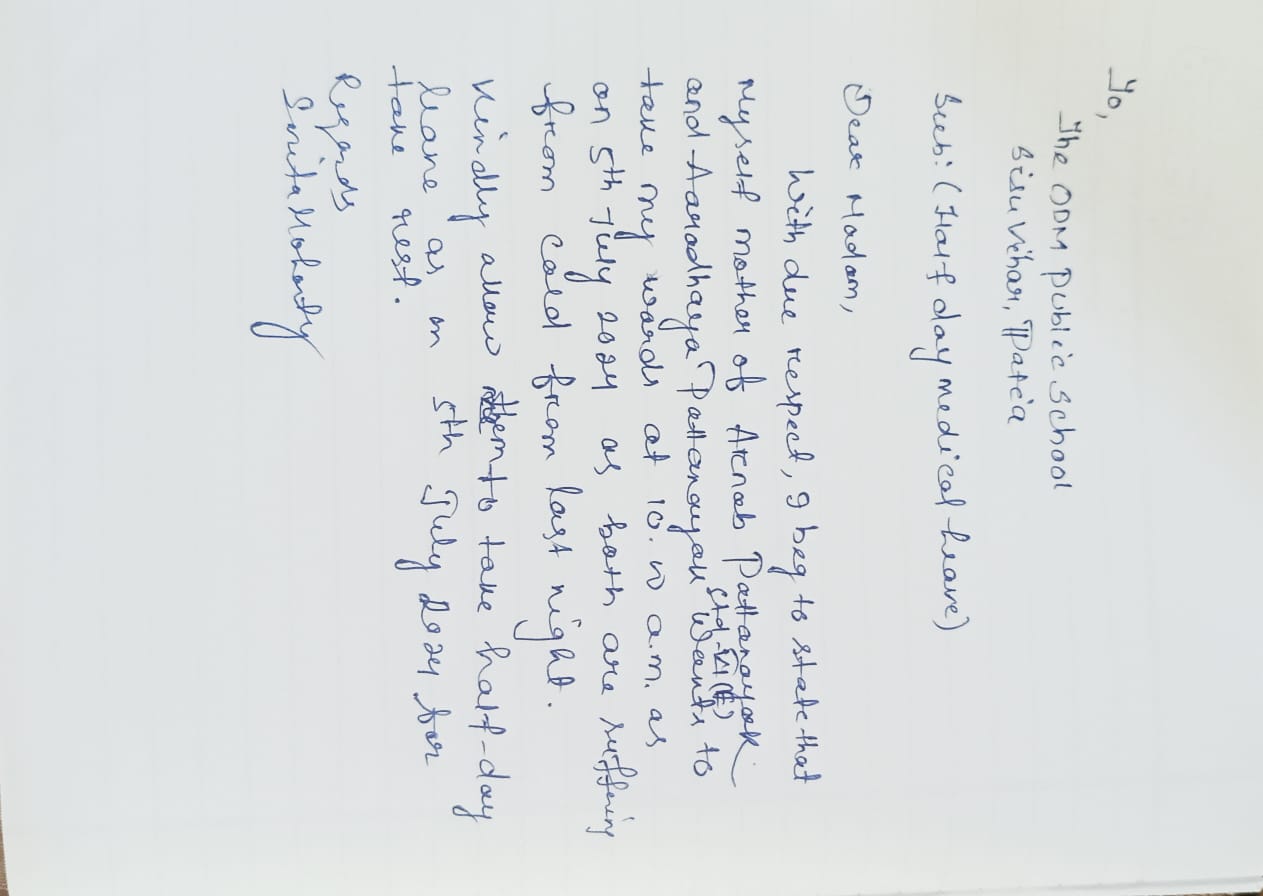 To,
The ODM Public School
Sisu Vihar, Patia
Sub: (Half day medical leave)
Dear Madam,
With due respect, I beg to state that
Myself mother of Arnab Pattanayak
Std-VI(E)
and Aaradhaya Pattanayak wants to
take my wards at 10.00 a.m. as
on 5th July 2024 as both are suffering
from cold from last night.
Kindly allow them to take half-day
leave as on 5th July 2024 for
take rest.
Regards
Smita Mohanty